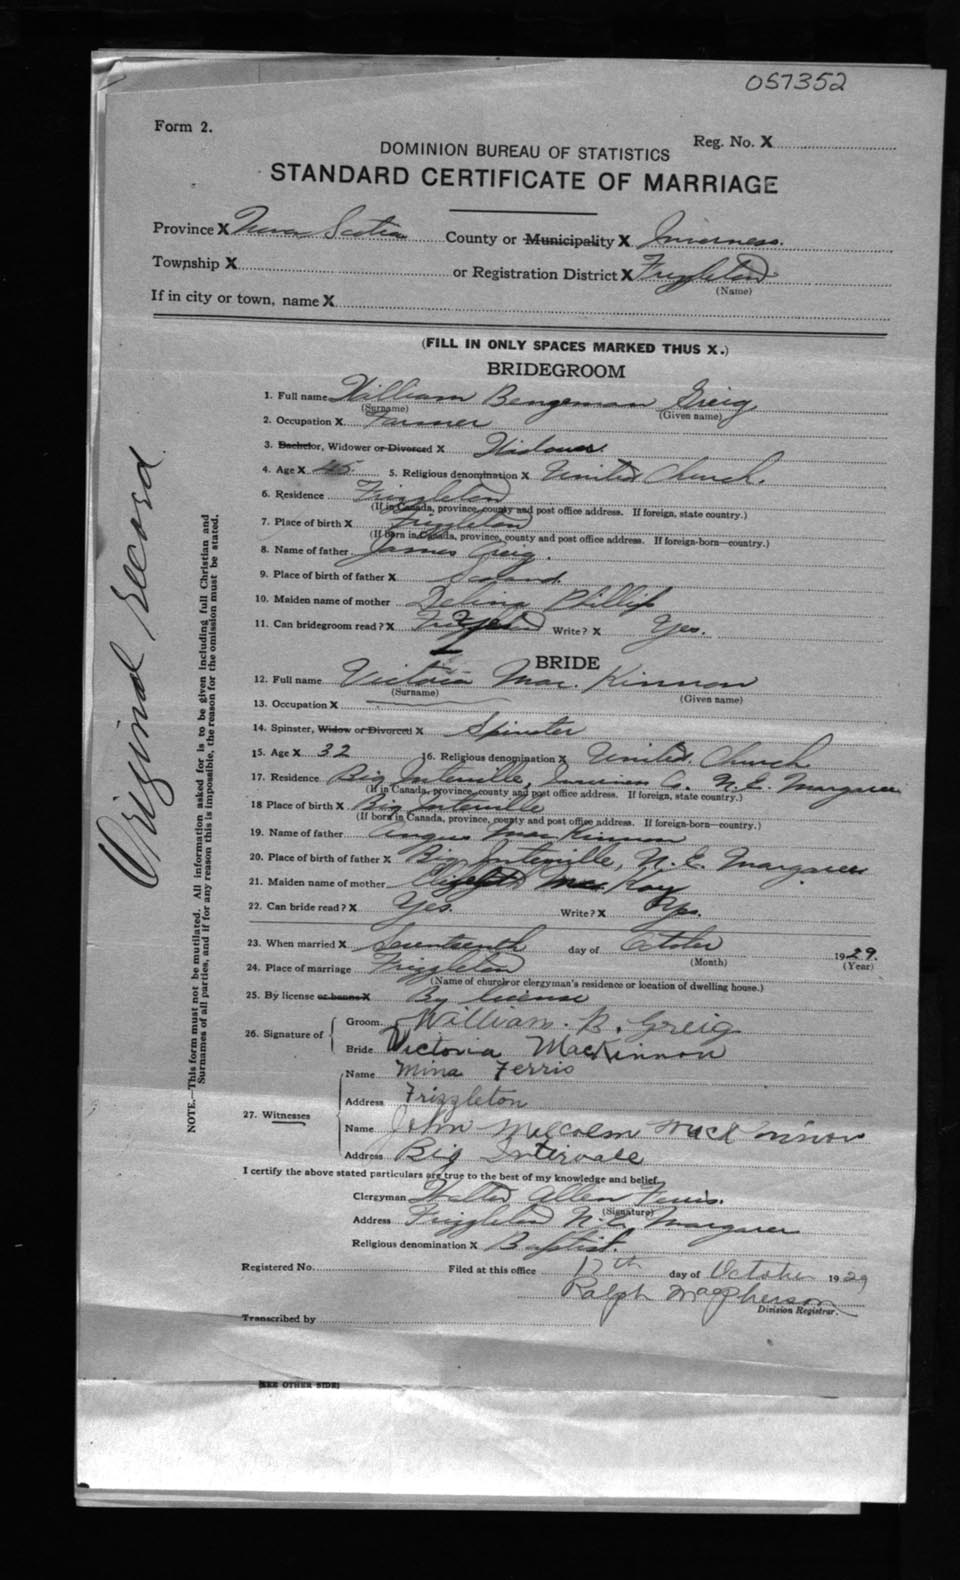 057352
Form 2.
Reg. No. X
DOMINION BUREAU OF STATISTICS
STANDARD CERTIFICATE OF MARRIAGE
Province X Nova Scotia County or Municipality X Inverness.
Township X or Registration District X Frizzleton
(Name)
If in city or town, name X
(FILL IN ONLY SPACES MARKED THUS X.)
BRIDEGROOM
1. Full name William Bengeman Greig
(Surname) (Given name)
2. Occupation X Farmer
3. Bachelor, Widower or Divorced X Widower
4. Age X 45 5. Religious denomination X United Church.
6. Residence Frizzleton
(If in Canada, province, county and post office address. If foreign, state country.)
7. Place of birth X Frizzleton
(If born in Canada, province, county and post office address. If foreign-born—country.)
8. Name of father James Greig.
9. Place of birth of father X
10. Maiden name of mother Phillip
11. Can bridegroom read? X Yes Write? X Yes.
BRIDE
12. Full name Victoria Mac. Kinnon
(Surname) (Given name)
13. Occupation X
14. Spinster, Widow or Divorced X Spinster
15. Age X 32 16. Religious denomination X United. Church
17. Residence Big Interville, Inverness Co. N.E. Margaree
(If in Canada, province, county and post office address. If foreign, state country.)
18 Place of birth X Big Interville
(If born in Canada, province, county and post office address. If foreign-born—country.)
19. Name of father Angus MacKinnon
20. Place of birth of father X Big Interville, N.E. Margaree
21. Maiden name of mother Kay
22. Can bride read? X Yes. Write? X Yes.
23. When married X Seventeenth day of October 1929.
(Month) (Year)
24. Place of marriage Frizzleton
(Name of church or clergyman's residence or location of dwelling house.)
25. By license or banns X By license
26. Signature of { Groom William. B. Greig
Bride Victoria MacKinnon
27. Witnesses { Name Mina Ferris
Address Frizzleton
Name John Malcolm MacKinnon
Address Big Intervale
I certify the above stated particulars are true to the best of my knowledge and belief.
Clergyman Walter Allen Ferris.
(Signature)
Address Frizzleton N.E. Margaree
Religious denomination X Baptist.
Registered No. Filed at this office 17th day of October 1929
Ralph MacPherson
Division Registrar.
Transcribed by
(SEE OTHER SIDE)
Original record.
NOTE.—This form must not be mutilated. All information asked for is to be given including full Christian and
Surnames of all parties, and if for any reason this is impossible, the reason for the omission must be stated.